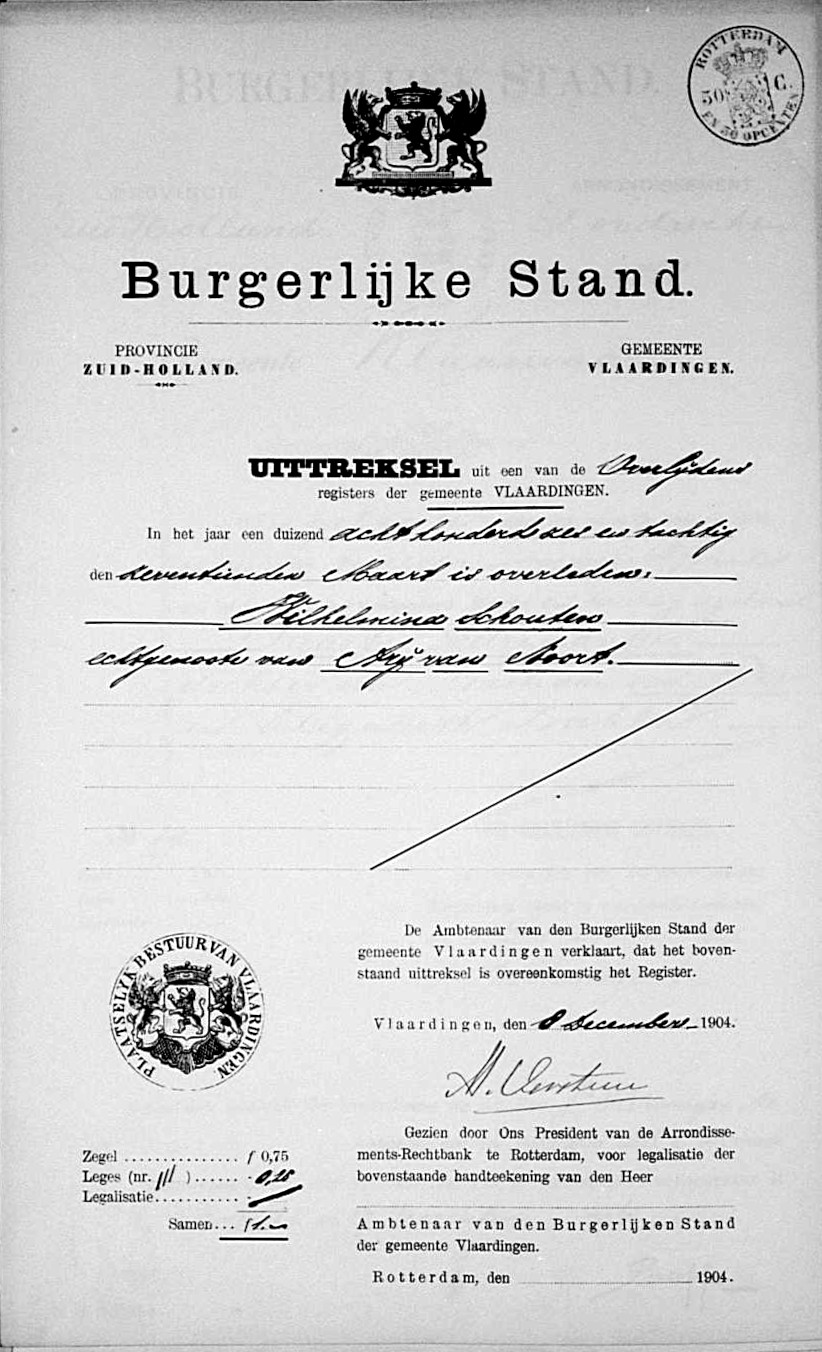 ROTTERDAM
50 C.
EN 50 OPCENTEN
Burgerlijke Stand.
PROVINCIE
ZUID-HOLLAND.
GEMEENTE
VLAARDINGEN.
UITTREKSEL uit een van de Overlijdens
registers der gemeente VLAARDINGEN.
In het jaar een duizend acht honderd zes en tachtig
den zeventienden Maart is overleden:
Wilhelmina Schouten
echtgenoote van Arij van Noort.
PLAATSELYK BESTUUR VAN VLAARDINGEN.
De Ambtenaar van den Burgerlijken Stand der
gemeente Vlaardingen verklaart, dat het boven-
staand uittreksel is overeenkomstig het Register.
Vlaardingen, den 8 December 1904.
Gezien door Ons President van de Arrondisse-
ments-Rechtbank te Rotterdam, voor legalisatie der
bovenstaande handteekening van den Heer
Ambtenaar van den Burgerlijken Stand
der gemeente Vlaardingen.
Rotterdam, den 1904.
Zegel ............... f 0,75
Leges (nr. III ) ...... - 0,25
Legalisatie........... -
Samen... f 1.-